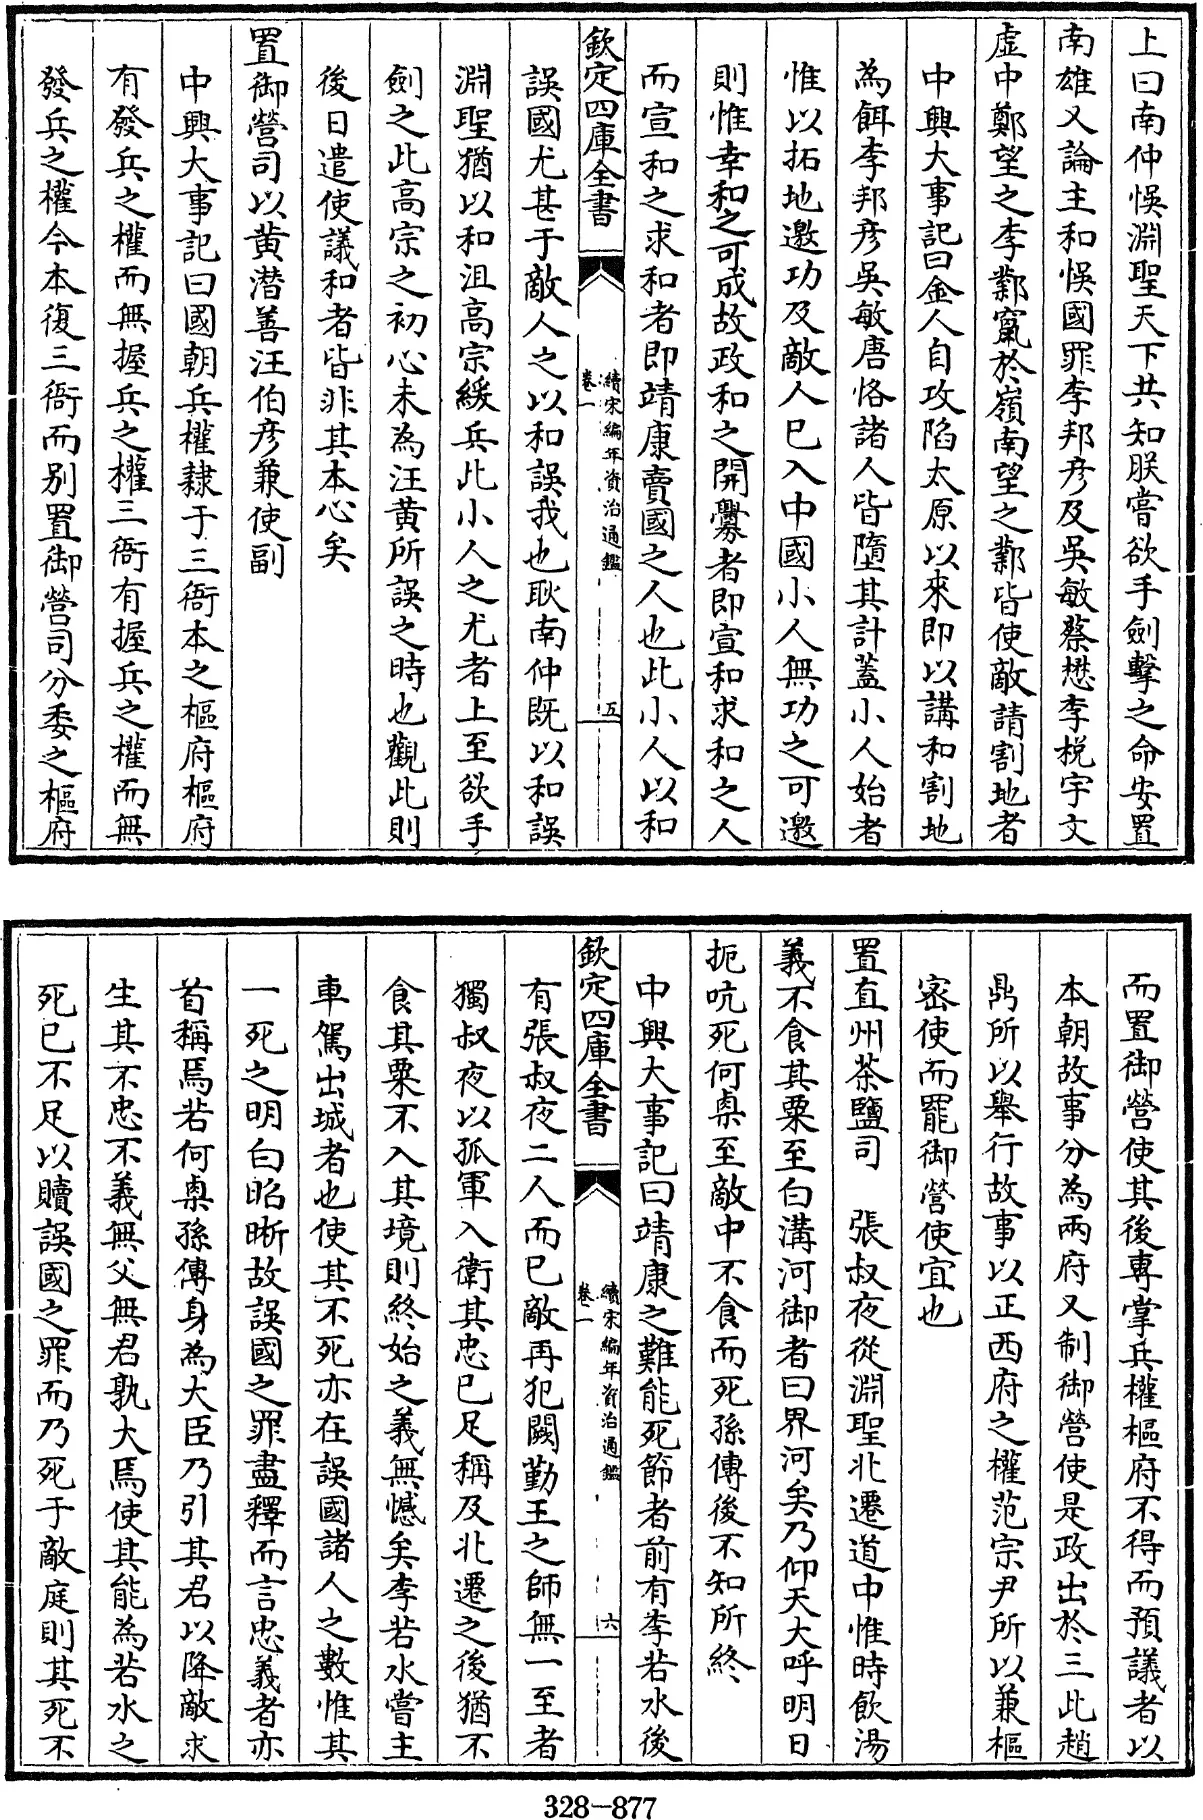 上曰南仲悞淵聖天下共知朕嘗欲手劍擊之命安置
南雄又論主和悞國罪李邦彦及吳敏蔡懋李梲宇文
虚中鄭望之李鄴竄於嶺南望之鄴皆使敵請割地者
中興大事記曰金人自攻陷太原以來即以講和割地
為餌李邦彦吳敏唐恪諸人皆墮其計蓋小人始者
惟以拓地邀功及敵人已入中國小人無功之可邀
則惟幸和之可成故政和之開釁者即宣和求和之人
而宣和之求和者即靖康賣國之人也此小人以和
欽定四庫全書
續宋編年資治通鑑
卷一
五
誤國尤甚于敵人之以和誤我也耿南仲既以和誤
淵聖猶以和沮高宗緩兵此小人之尤者上至欲手
劍之此高宗之初心未為汪黄所誤之時也觀此則
後日遣使議和者皆非其本心矣
置御營司以黄潛善汪伯彦兼使副
中興大事記曰國朝兵權隸于三衙本之樞府樞府
有發兵之權而無握兵之權三衙有握兵之權而無
發兵之權今本復三衙而别置御營司分委之樞府
而置御營使其後專掌兵權樞府不得而預議者以
本朝故事分為兩府又制御營使是政出於三此趙
鼎所以舉行故事以正西府之權范宗尹所以兼樞
宻使而罷御營使宜也
置直州茶鹽司 張叔夜從淵聖北遷道中惟時飲湯
義不食其粟至白溝河御者曰界河矣乃仰天大呼明日
扼吭死何㮚至敵中不食而死孫傅後不知所終
中興大事記曰靖康之難能死節者前有李若水後
欽定四庫全書
續宋編年資治通鑑
卷一
六
有張叔夜二人而已敵再犯闕勤王之師無一至者
獨叔夜以孤軍入衛其忠已足稱及北遷之後猶不
食其粟不入其境則終始之義無憾矣李若水嘗主
車駕出城者也使其不死亦在誤國諸人之數惟其
一死之明白昭晰故誤國之罪盡釋而言忠義者亦
首稱焉若何㮚孫傅身為大臣乃引其君以降敵求
生其不忠不義無父無君孰大焉使其能為若水之
死已不足以贖誤國之罪而乃死于敵庭則其死不
328-877